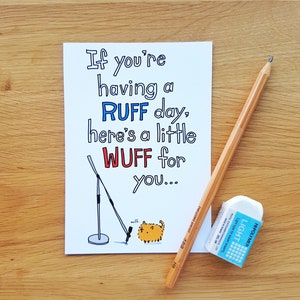 If you're
having a
RUFF day,
here's a little
WUFF for
you...
LIGHT